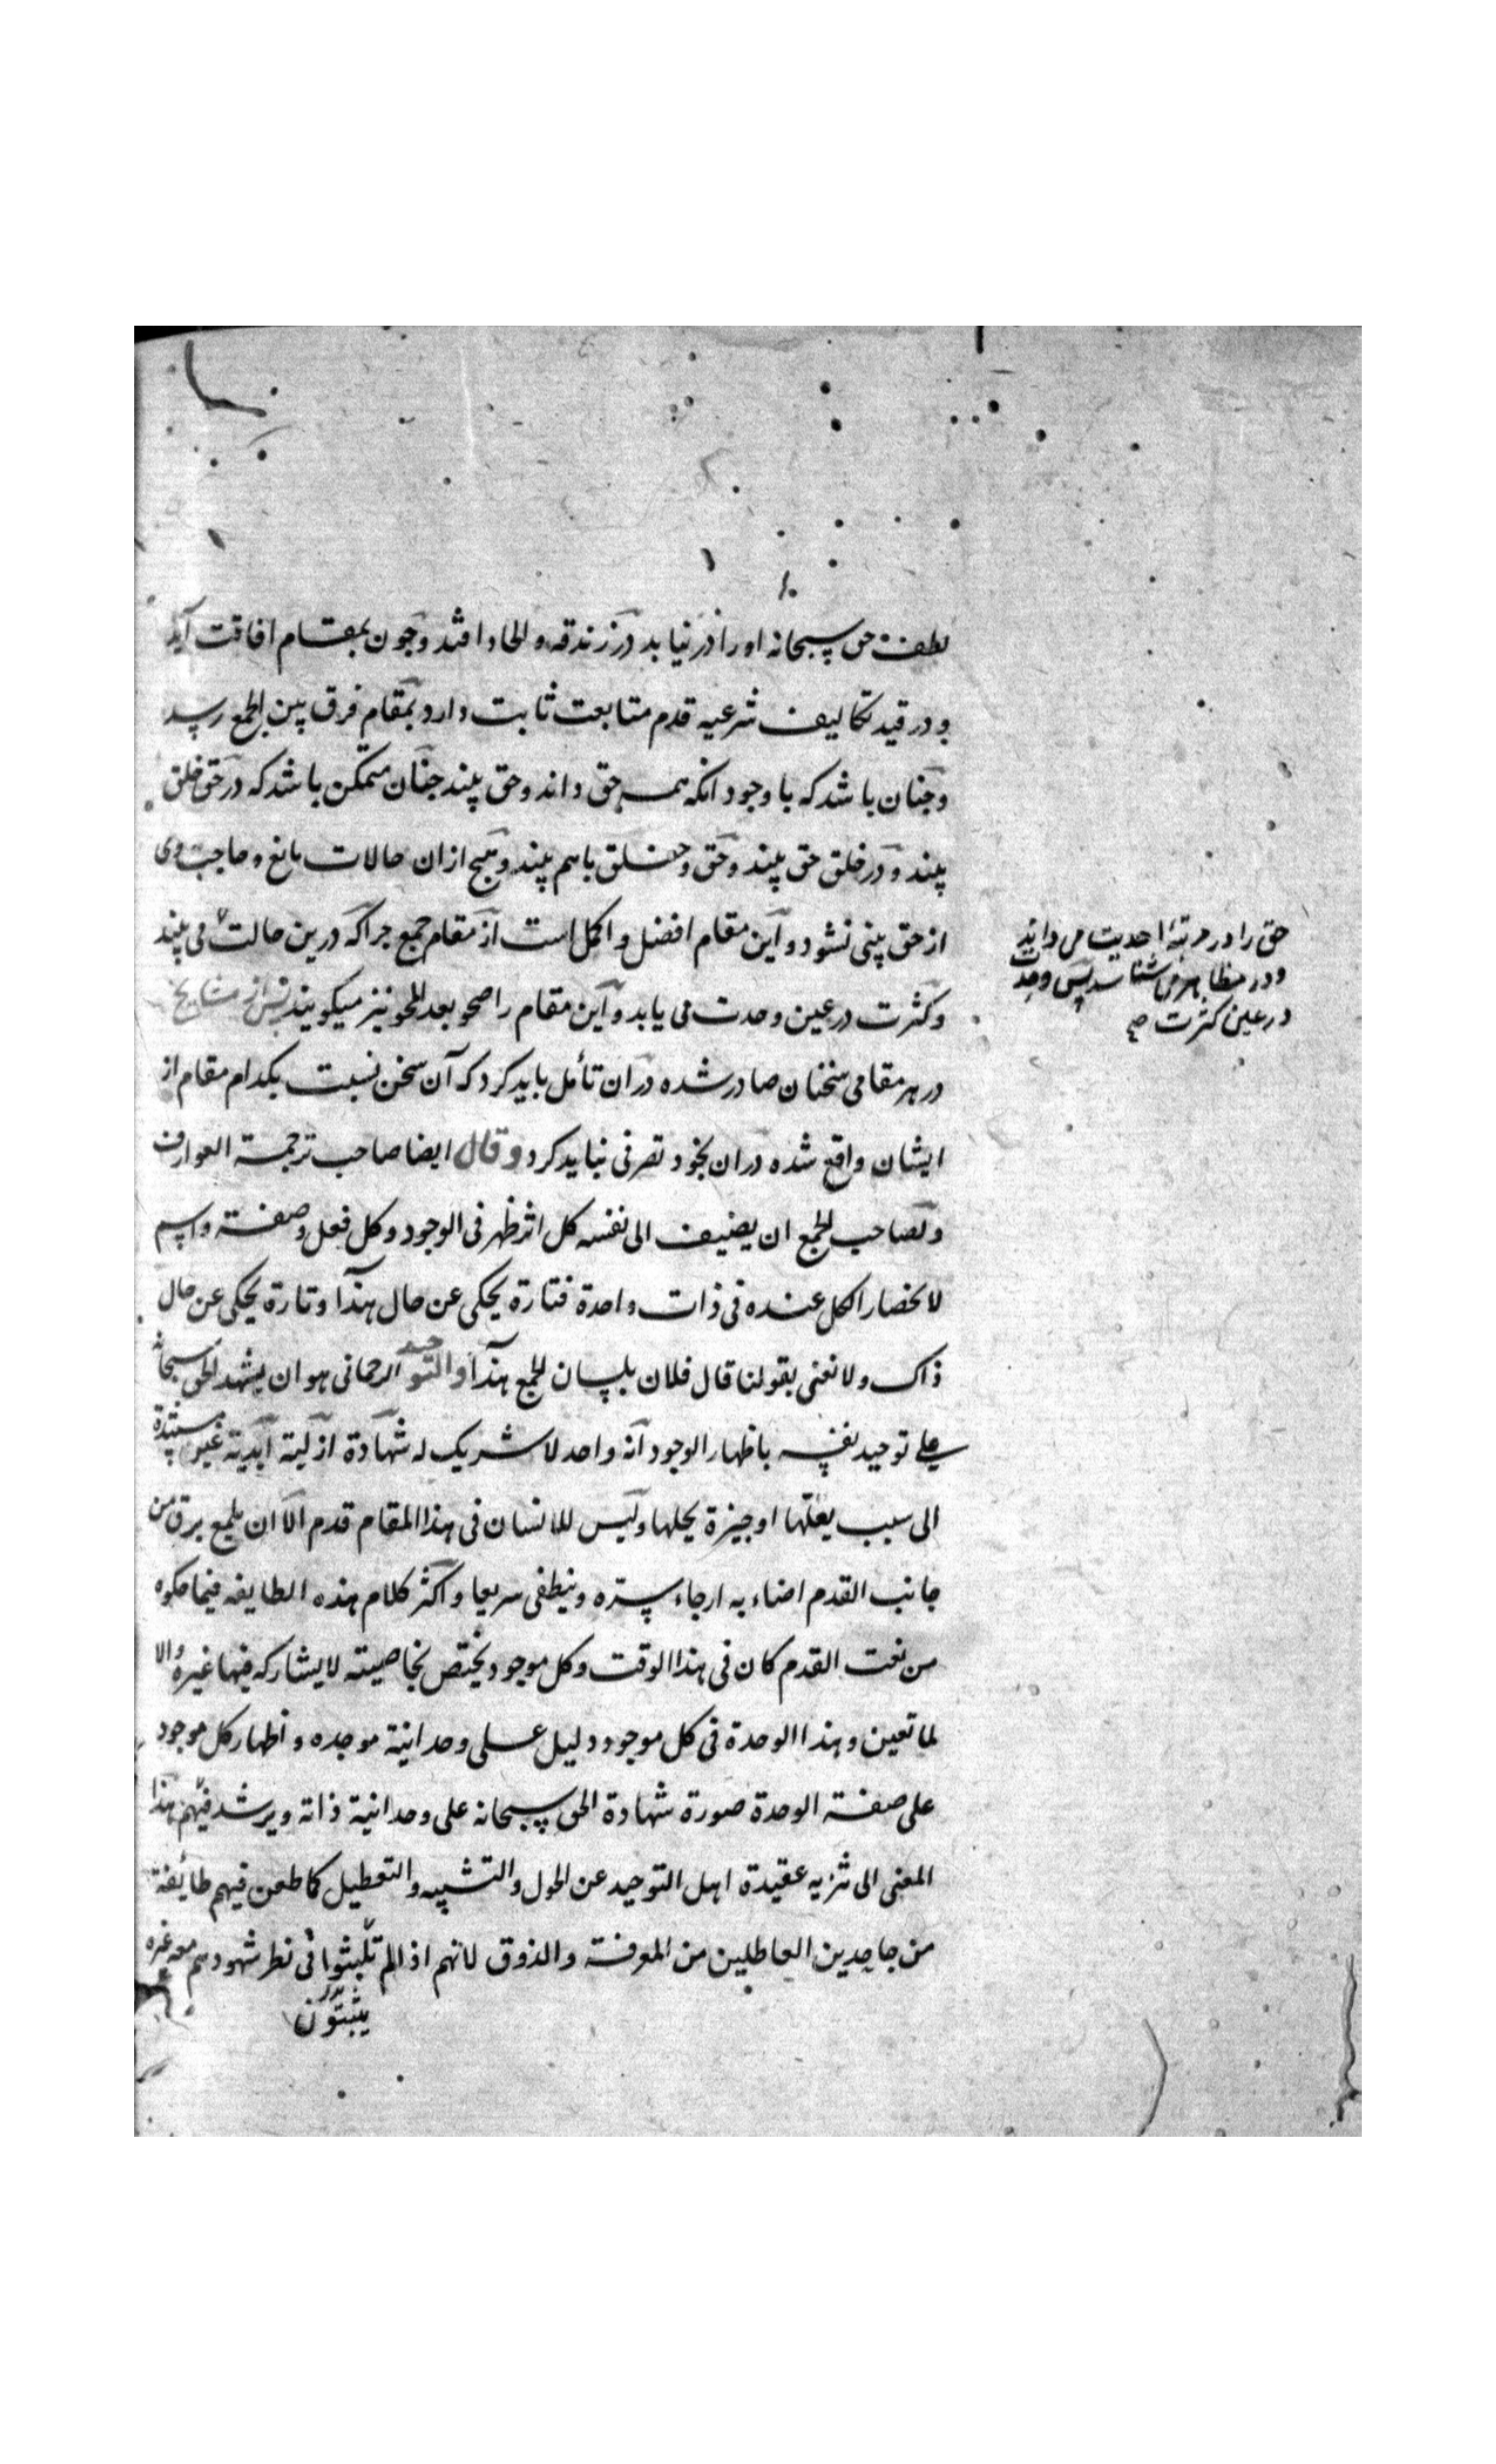 لطف حق سبحانه اورا در نیابد در زندقه و الحاد افتد و چون بمقام افاقت آید
و در قید تکالیف شرعیه قدم متابعت ثابت دارد بمقام فرق بین الجمع رسد
و جنان باشد که با وجود انکه همه حق داند و حق بیند جنان متمکن باشد که در حق خلق
بیند و در خلق حق بیند و حق و خلق باهم بیند و هیج ازان حالات مانع و حاجب وی
از حق بینی نشود و این مقام افضل و اکمل است از مقام جمع جراکه درین حالت می بیند
و کثرت در عین وحدت می یابد و این مقام را صحو بعد المحو نیز میکویند پس از مشایخ
در هر مقامی سخنان صادر شده دران تأمل باید کرد که آن سخن نسبت بکدام مقام از
ایشان واقع شده دران بخود تصرفی نباید کرد و قال ایضا صاحب ترجمة العوارف
و لصاحب الجمع ان یضیف الی نفسه کل اثر ظهر فی الوجود و کل فعل و صفة و اسم
لانحصار الکل عنده فی ذات واحدة فتارة یحکی عن حال هذا و تارة یحکی عن حال
ذاک و لا نعنی بقولنا قال فلان بلسان الجمع هذا و التوحید الرحمانی هو ان یشهد الحق سبحانه
علی توحید نفسه باظهار الوجود انه واحد لا شریک له شهادة ازلیة ابدیة غیر مستندة
الی سبب یعلّها او جیزة یحلها و لیس للانسان فی هذا المقام قدم الا ان یلمع برق من
جانب القدم اضاء به ارجاء سره و ینطفی سریعا و اکثر کلام هذه الطایفه فیما حکوه
من نعت القدم کان فی هذا الوقت و کل موجود یختص بخاصیته لا یشارکه فیها غیره و الا
لما تعین و هذا الوحدة فی کل موجود دلیل علی وحدانیة موجده و اظهار کل موجود
علی صفة الوحدة صورة شهادة الحق سبحانه علی وحدانیة ذاته و یرشد فهم هذا
المعنی الی تنزیه عقیدة اهل التوحید عن الحول و التشبیه و التعطیل کما طعن فیهم طائفة
من جاحدین العاطلین من المعرفة و الذوق لانهم اذا لم تلبثوا فی نظر شهودهم معه غیره
یثبتون
حق را در مرتبهٔ احدیت می داند
و در مظاهر می شناسد پس وحدت
در عین کثرت صح